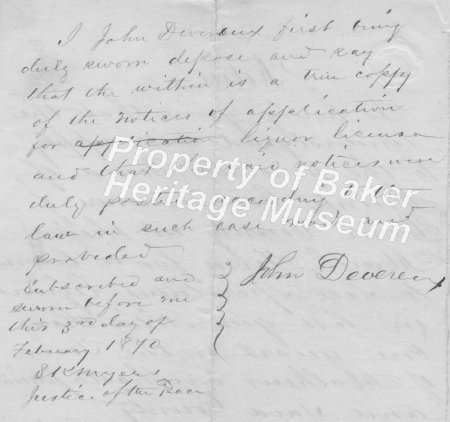 I John Devereux first being
duly sworn depose and say
that the within is a true coppy
of the notices of application
for application liquor license
and that said notices were
duly posted according to the
law in such case made and
provided
Subscribed and
sworn before me
this 3rd day of
February 1870
S K Myers
Justice of the Peace
John Devereux
Property of Baker
Heritage Museum